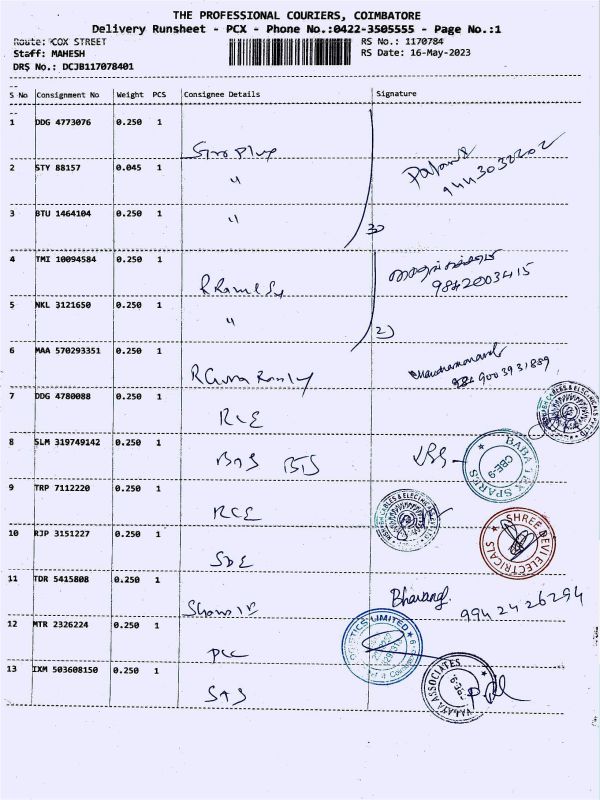 THE PROFESSIONAL COURIERS, COIMBATORE
Delivery Runsheet - PCX - Phone No.:0422-3505555 - Page No.:1
Route: COX STREET
RS No.: 1170784
Staff: MAHESH
RS Date: 16-May-2023
DRS No.: DCJB117078401
S No Consignment No Weight PCS Consignee Details Signature
1 DDG 4773076 0.250 1
2 STY 88157 0.045 1 "
3 BTU 1464104 0.250 1 "
3)
4 TMI 10094584 0.250 1 R Ramesh
9842003415
5 NKL 3121650 0.250 1 "
2)
6 MAA 570293351 0.250 1
9003931889
7 DDG 4780088 0.250 1 RCE
8 SLM 319749142 0.250 1 BTS
BABA TEX SPARES
CBE-9
9 TRP 7112220 0.250 1 RCE
10 RJP 3151227 0.250 1 SDE
SHREE DEVI ELECTRICALS
11 TDR 5415808 0.250 1
9942426294
12 MTR 2326224 0.250 1 PCC
LIMITED
13 IXM 503608150 0.250 1 SAS
VIJAYA ASSOCIATES